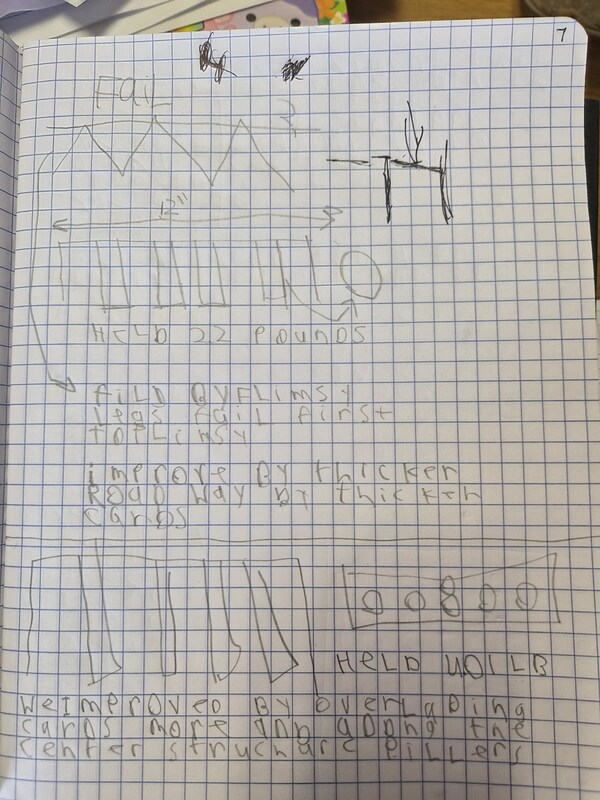 7
FaiL
12"
HeLD 22 POunDS
FilD BY FLimsY
legs Fail First
toPLimsY
imProve BY thicker
ROaD way BY thicker
CarDs
HeLD 40LLB
WeImProveD BY overLaDing
CarDs more anD aDDng the
Center strucharc PiLLers